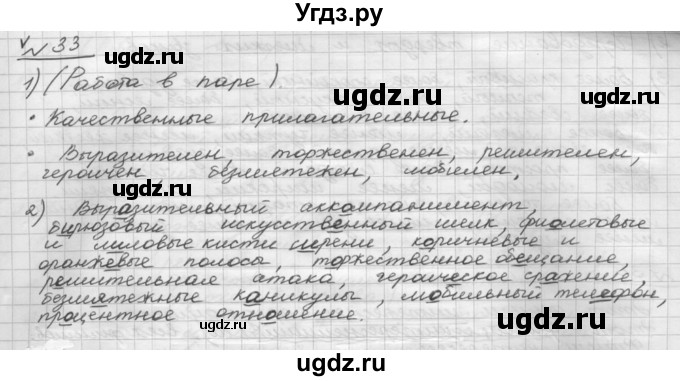 Угдз.ру
№ 33
1) (Работа в паре).
• Качественные прилагательные.
• Выразителен, торжественен, решителен,
героичен, безмятежен, мобилен,
2) Выразительный аккомпанимент,
бирюзовый искусственный шелк, фиолетовые
и лиловые кисти сирени, коричневые и
оранжевые полосы, торжественное обещание,
решительная атака, героическое сражение,
безмятежные каникулы, мобильный телефон,
процентное отношение.
ugdz.ru
ugdz.ru
ugdz.ru
ugdz.ru
ugdz.ru
ugdz.ru
ugdz.ru
ugdz.ru
ugdz.ru
ugdz.ru
ugdz.ru